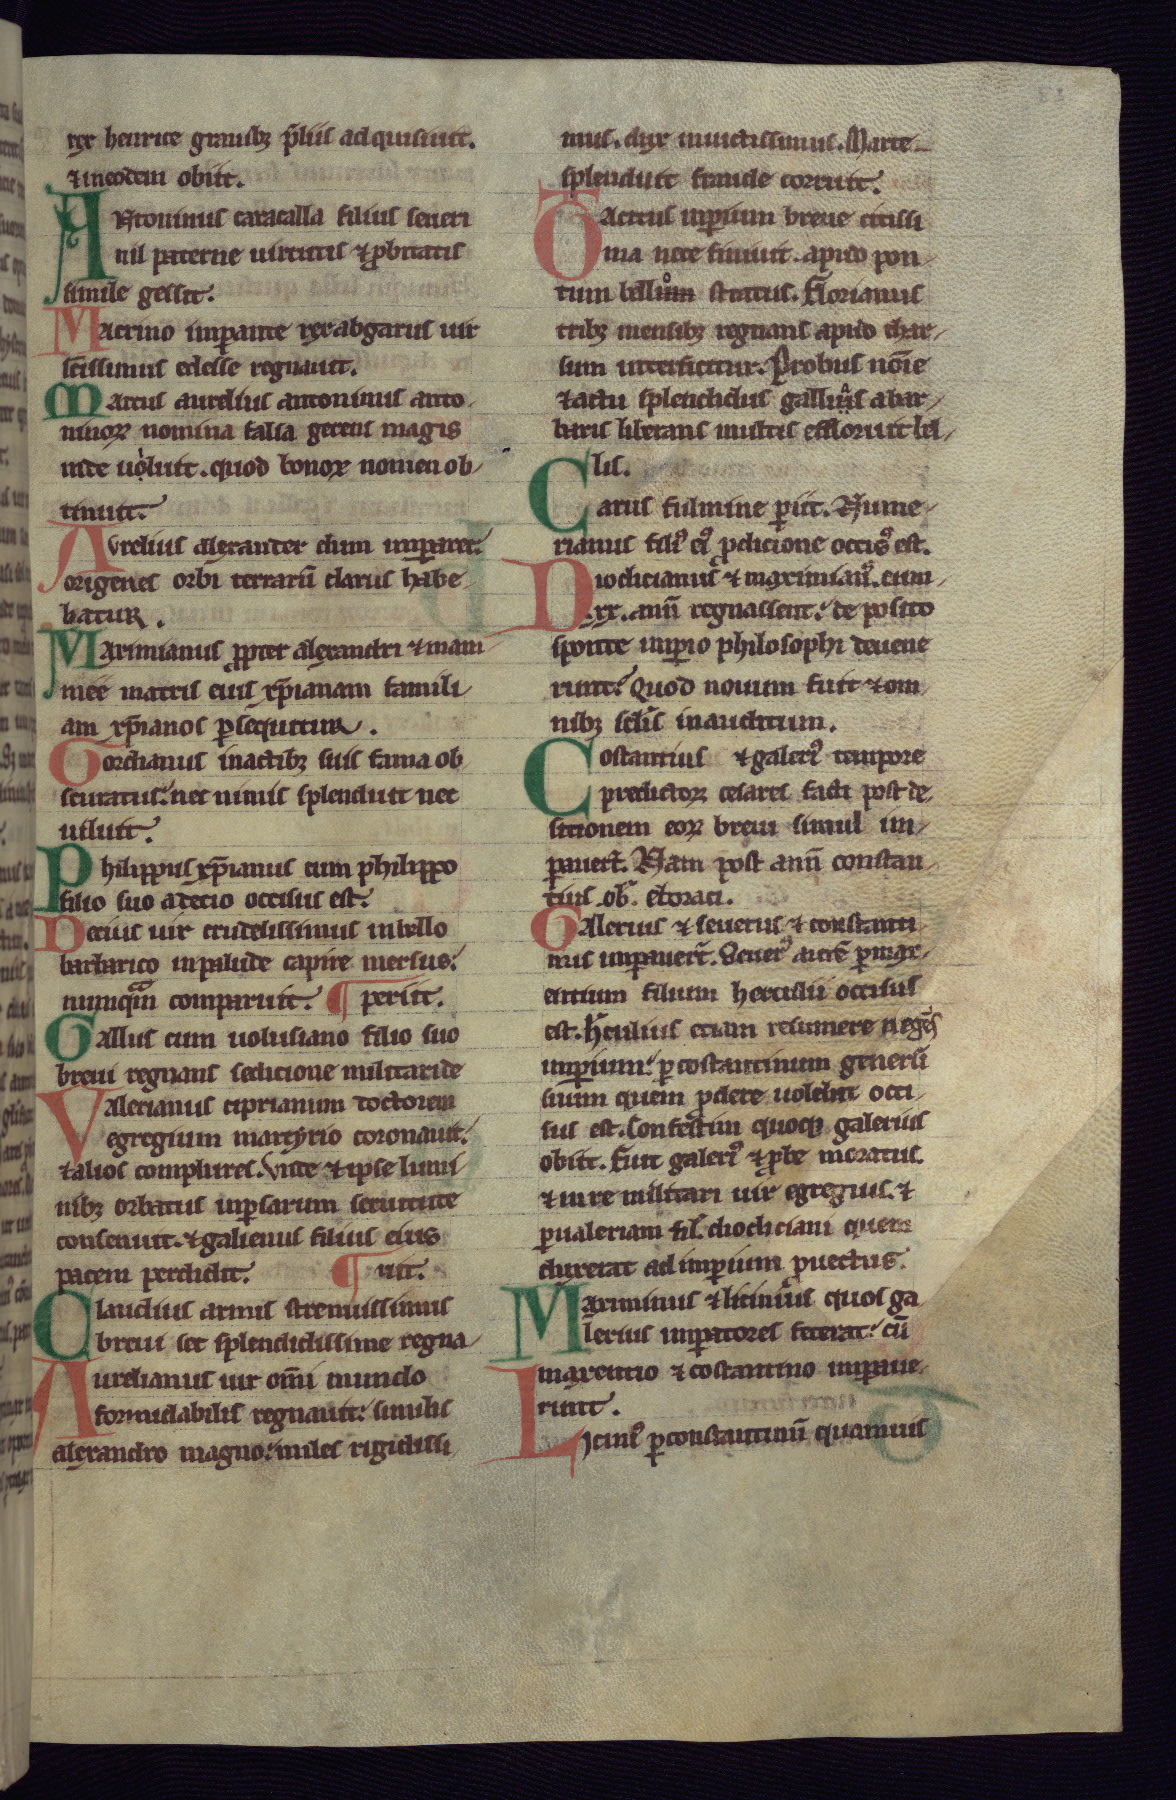 rex henrice grauibꝫ p̄liis adquisiuit.
⁊ ineodem obiit.
Antoninus caracalla filius seueri
nil paterne uirtutis ⁊ ꝓbitatis
simile gessit.
Macrino imꝑante rex abgarus uir
sc̄issimus edesse regnauit.
Marcus aurelius antoninus anto
ninoꝝ nomina falsa gerens magis
inde uoluit. quod bonoꝝ nomen ob
tinuit.
Aurelius alexander dum imꝑaret
origenes orbi terrarū clarus habe
batur.
Maximianus ꝓpter alexandri ⁊ mam
mee matris eius xp̄ianam famili
am xp̄ianos ꝑsequitur.
Gordianus inactibꝫ suis fama ob
scuratus. nec nimis splenduit nec
uiluit.
Philippus xp̄ianus cum philippo
filio suo adecio occisus est.
Decius uir crudelissimus inbello
barbarico inpalude capire mersus.
numquam comparuit. ¶ periit.
Gallus cum uolusiano filio suo
breui regnans sedicione militaride
Valerianus ciprianum doctorem
egregium martyrio coronauit.
⁊ alios complures. Vnde ⁊ ipse lumi
nibꝫ orbatus inꝑsarum seruitute
consenuit. ⁊ galienus filius eius
pacem perdidit. ¶ uit.
Claudius armis strenuissimus
breui set splendidissime regna
Aurelianus uir om̄i mundo
formidabilis regnauit. similis
alexandro magno. miles rigidissi
mus. dux inuictissimus. Marte
splenduit fraude corruit.
Tacitus inꝑium breue citissi
ma nece finiuit. apud pon
tum bellum status. Florianus
tribꝫ mensibꝫ regnans apud thar
sum interficitur. Probus no̅ie
⁊ actu splendidus gallias abar
baris liberans multis effloruit bel
lis.
Carus fulmine ꝑiit. Nume
rianus fili⁹ ei⁹ ꝓdicione occis⁹ est.
Dioclicianus ⁊ maximian⁹. cum
.xx. ann̄ regnassent. de posito
sponte imꝑio philosophi deuene
runt. Quod nouum fuit ⁊ om
nibꝫ sclis̄ inauditum.
Costantius ⁊ galeri⁹ tempore
predictoꝝ cesares facti post de
sitionem eoꝝ breui simul im
ꝑauerͭ. Nam post ann̄ constan
tius .ob̄. eboraci.
Galerius ⁊ seuerus ⁊ constanti
nus imꝑauerͭ. Seuer⁹ ꝑ max
entium filium herculii occisus
est. Herculius etiam resumere
imꝑium. ꝑ costantinum generū
suum quem ꝓdere uolebat occi
sus est. Confestim quoqꝫ galerius
obiit. Fuit galeri⁹ ⁊ ꝓbe moratus.
⁊ inre militari uir egregius. ⁊
ꝑualeriam fil̄. diocliciani quem
duxerat ad imꝑium ꝓuectus.
Maximinus ⁊ licinius quos ga
lerius imꝑatores fecerat. cū
maxentio ⁊ costantino imꝑaue
runt.
Licini⁹ ꝑconstantinū quamuis